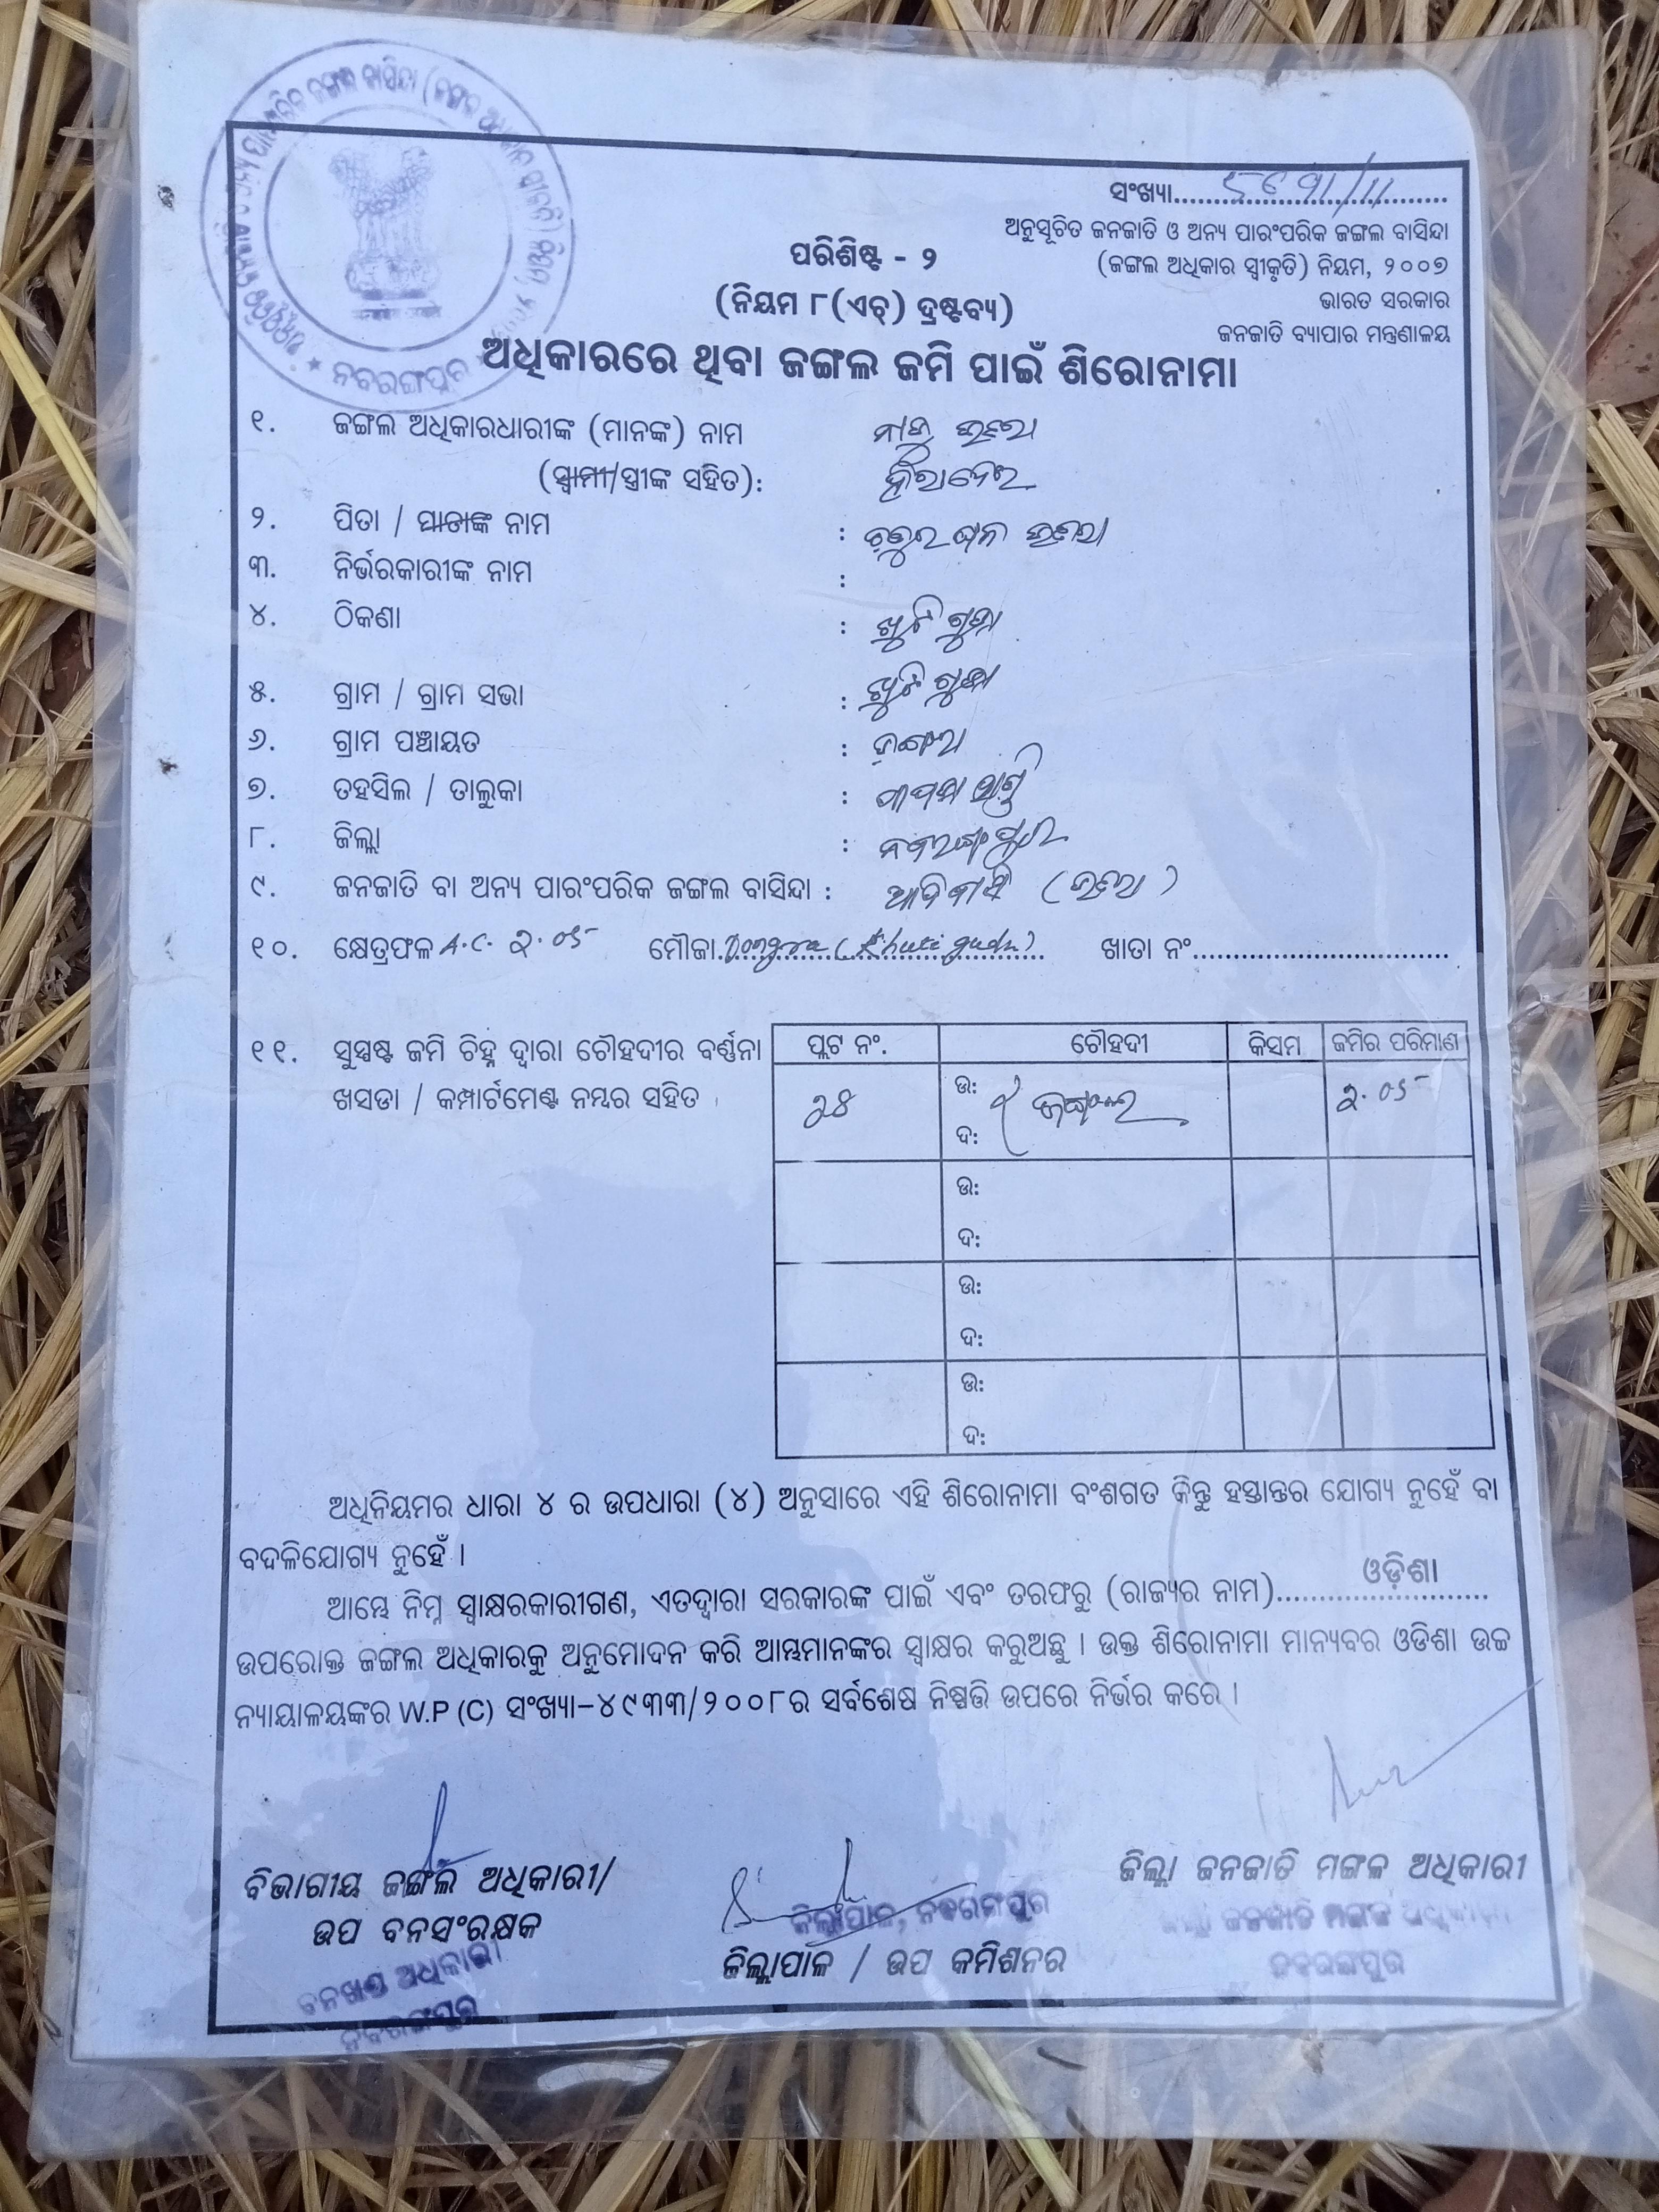 ସଂଖ୍ୟା
ଅନୁସୂଚିତ ଜନଜାତି ଓ ଅନ୍ୟ ପାରଂପରିକ ଜଙ୍ଗଲ ବାସିନ୍ଦା
(ଜଙ୍ଗଲ ଅଧିକାର ସ୍ୱୀକୃତି) ନିୟମ, ୨୦୦୭
ଭାରତ ସରକାର
ଜନଜାତି ବ୍ୟାପାର ମନ୍ତ୍ରଣାଳୟ
ପରିଶିଷ୍ଟ - ୨
(ନିୟମ ୮(ଏଚ୍) ଦ୍ରଷ୍ଟବ୍ୟ)
ଅଧିକାରରେ ଥିବା ଜଙ୍ଗଲ ଜମି ପାଇଁ ଶିରୋନାମା
୧. ଜଙ୍ଗଲ ଅଧିକାରଧାରୀଙ୍କ (ମାନଙ୍କ) ନାମ
(ସ୍ୱାମୀ/ସ୍ତ୍ରୀଙ୍କ ସହିତ):
୨. ପିତା / ମାତାଙ୍କ ନାମ :
୩. ନିର୍ଭରକାରୀଙ୍କ ନାମ :
୪. ଠିକଣା : ଖୁଟିଗୁଡା
୫. ଗ୍ରାମ / ଗ୍ରାମ ସଭା : ଖୁଟିଗୁଡା
୬. ଗ୍ରାମ ପଞ୍ଚାୟତ :
୭. ତହସିଲ / ତାଲୁକା : ପାପଡାହାଣ୍ଡି
୮. ଜିଲ୍ଲା : ନବରଙ୍ଗପୁର
୯. ଜନଜାତି ବା ଅନ୍ୟ ପାରଂପରିକ ଜଙ୍ଗଲ ବାସିନ୍ଦା : ଆଦିବାସୀ
୧୦. କ୍ଷେତ୍ରଫଳ A.C. ୨.୦5 ମୌଜା (Khuti guda) ଖାତା ନଂ
୧୧. ସୁସ୍ପଷ୍ଟ ଜମି ଚିହ୍ନ ଦ୍ୱାରା ଚୌହଦୀର ବର୍ଣ୍ଣନା
ଖସଡା / କମ୍ପାର୍ଟମେଣ୍ଟ ନମ୍ବର ସହିତ
ପ୍ଲଟ ନଂ. ଚୌହଦୀ କିସମ ଜମିର ପରିମାଣ
ଉ: ଜଙ୍ଗଲ ୨.୦5
ଦ:
ଉ:
ଦ:
ଉ:
ଦ:
ଉ:
ଦ:
ଅଧିନିୟମର ଧାରା ୪ ର ଉପଧାରା (୪) ଅନୁସାରେ ଏହି ଶିରୋନାମା ବଂଶଗତ କିନ୍ତୁ ହସ୍ତାନ୍ତର ଯୋଗ୍ୟ ନୁହେଁ ବା
ବଦଳିଯୋଗ୍ୟ ନୁହେଁ ।
ଆମ୍ଭେ ନିମ୍ନ ସ୍ୱାକ୍ଷରକାରୀଗଣ, ଏତଦ୍ୱାରା ସରକାରଙ୍କ ପାଇଁ ଏବଂ ତରଫରୁ (ରାଜ୍ୟର ନାମ) ଓଡ଼ିଶା
ଉପରୋକ୍ତ ଜଙ୍ଗଲ ଅଧିକାରକୁ ଅନୁମୋଦନ କରି ଆମ୍ଭମାନଙ୍କର ସ୍ୱାକ୍ଷର କରୁଅଛୁ । ଉକ୍ତ ଶିରୋନାମା ମାନ୍ୟବର ଓଡିଶା ଉଚ୍ଚ
ନ୍ୟାୟାଳୟଙ୍କର W.P (C) ସଂଖ୍ୟା-୪୯୩୩/୨୦୦୮ର ସର୍ବଶେଷ ନିଷ୍ପତ୍ତି ଉପରେ ନିର୍ଭର କରେ ।
ବିଭାଗୀୟ ଜଙ୍ଗଲ ଅଧିକାରୀ/
ଉପ ବନସଂରକ୍ଷକ
ବନଖଣ୍ଡ ଅଧିକାରୀ
ନବରଙ୍ଗପୁର
ଜିଲ୍ଲାପାଳ, ନବରଙ୍ଗପୁର
ଜିଲ୍ଲାପାଳ / ଉପ କମିଶନର
ଜିଲ୍ଲା ଜନଜାତି ମଙ୍ଗଳ ଅଧିକାରୀ
ଜିଲ୍ଲା ଜନଜାତି ମଙ୍ଗଳ ଅଧିକାରୀ
ନବରଙ୍ଗପୁର